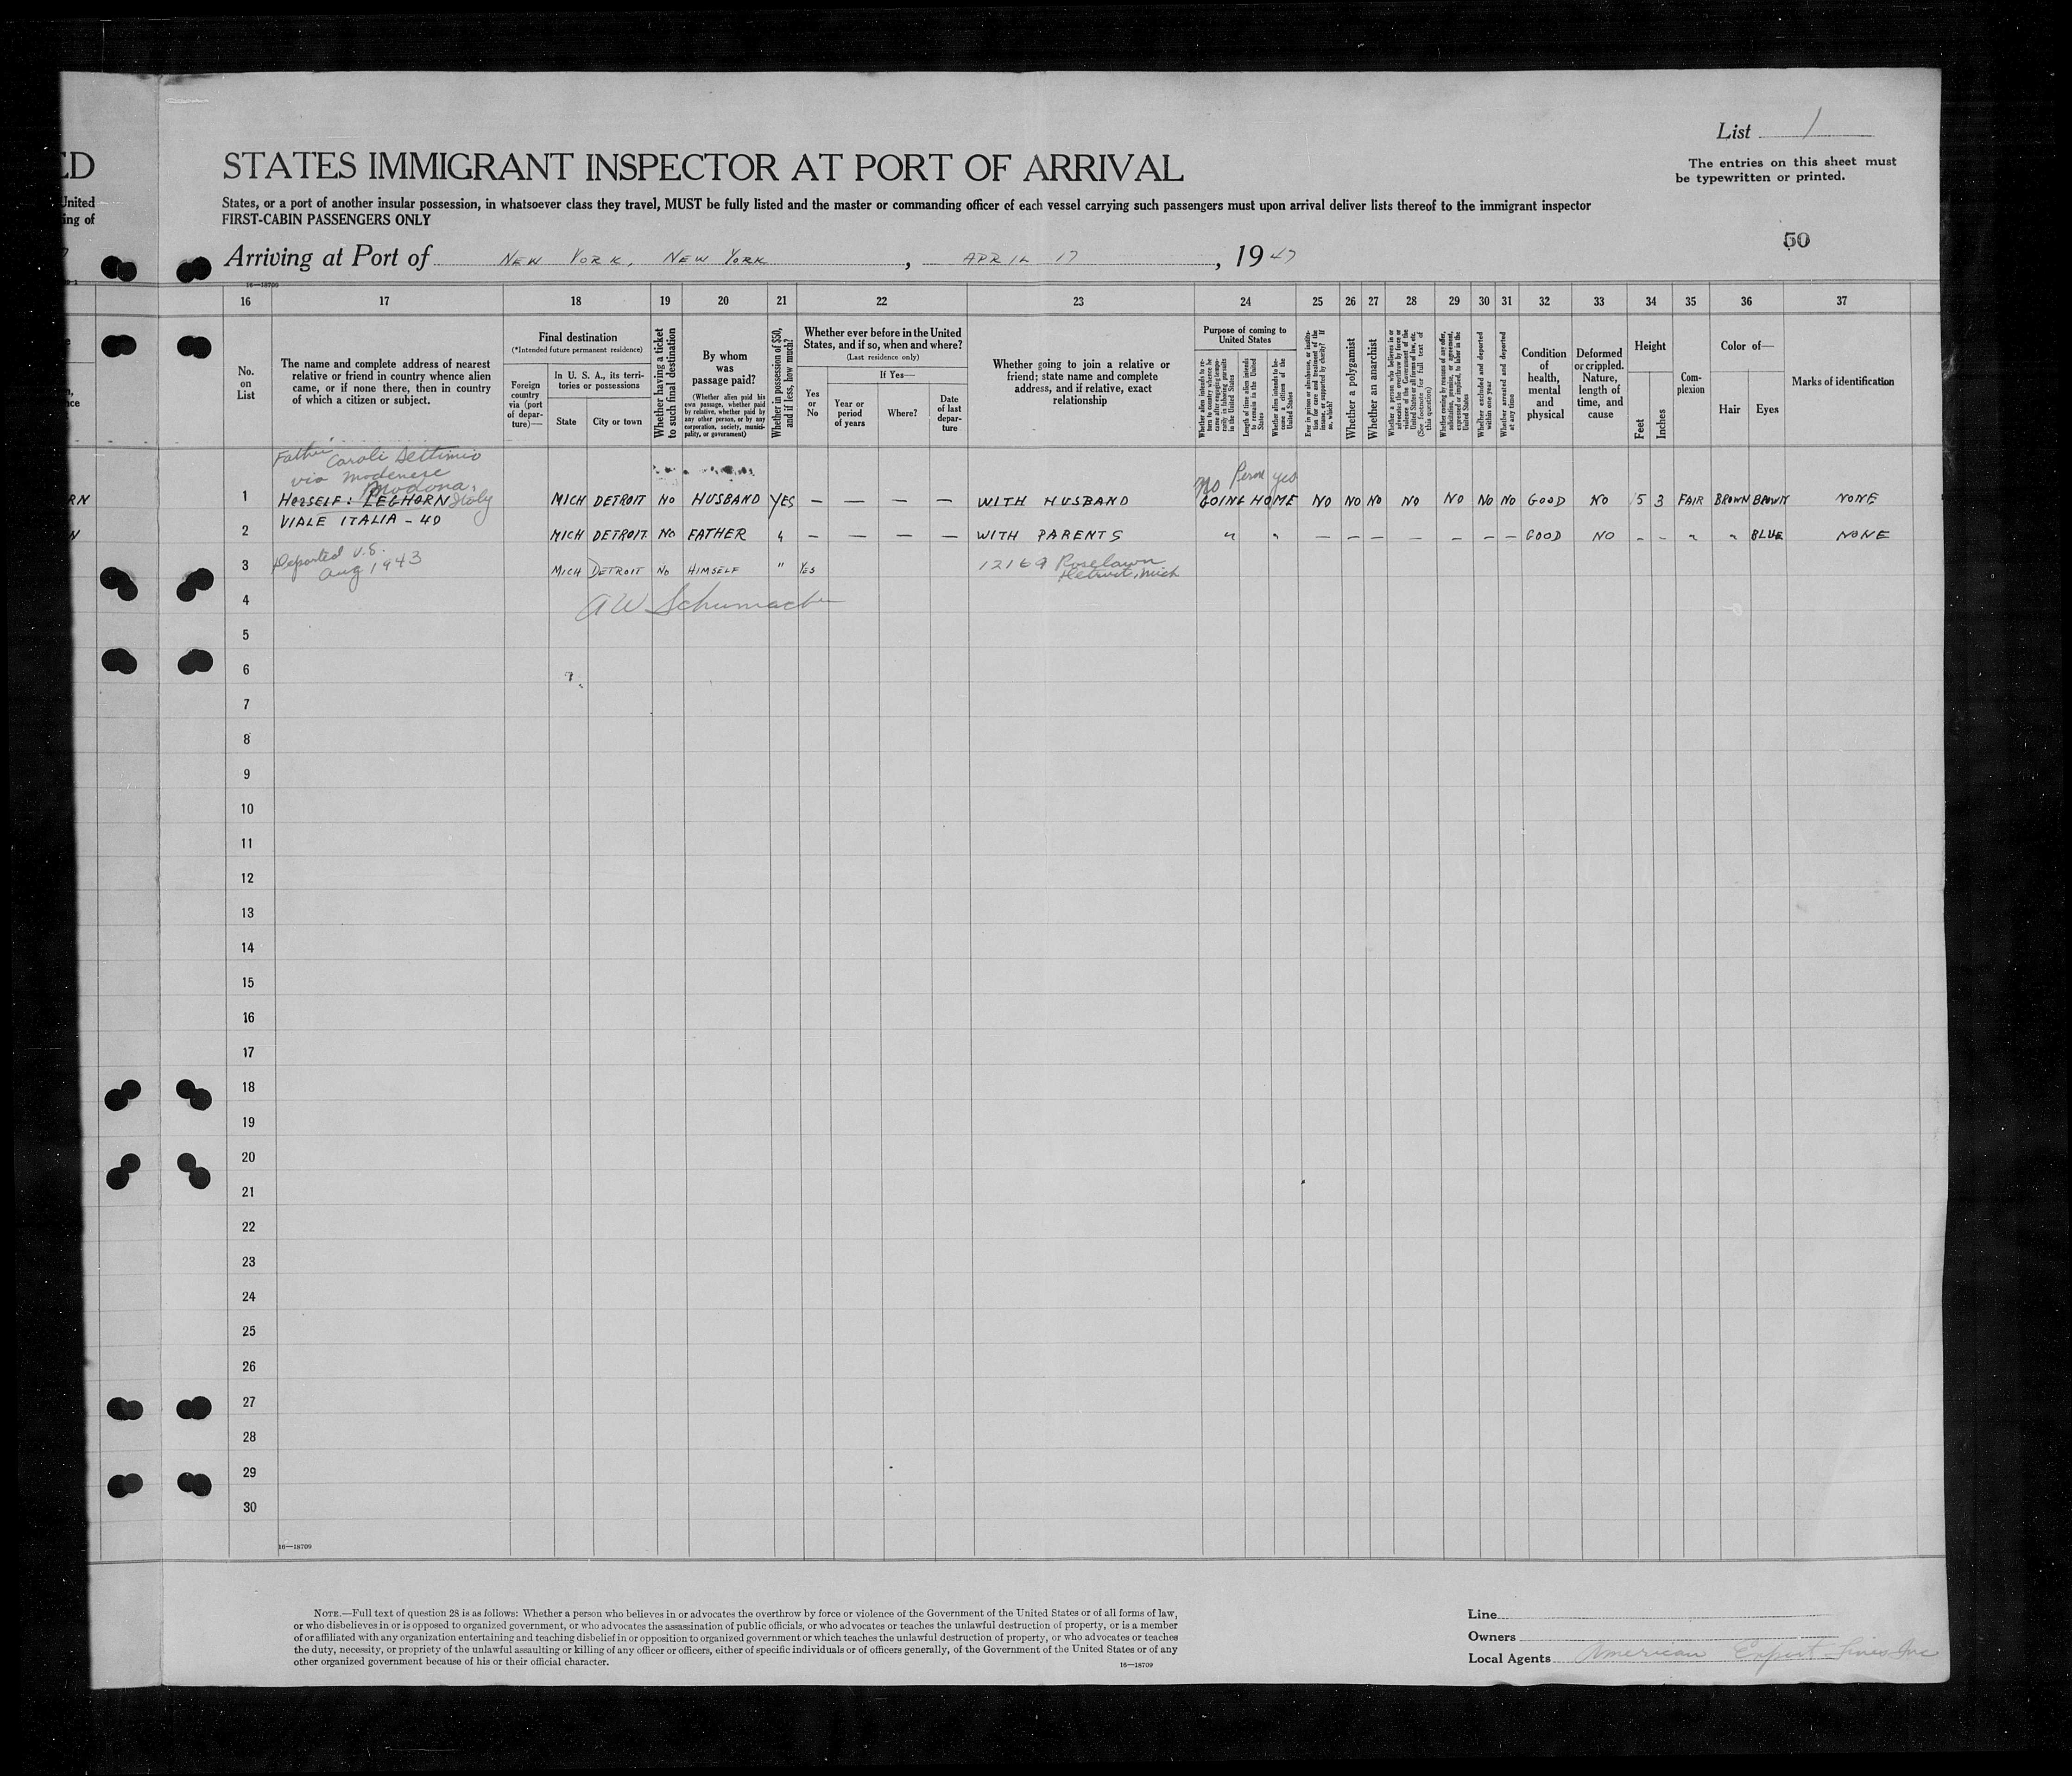 List 1
The entries on this sheet must
be typewritten or printed.
ED
STATES IMMIGRANT INSPECTOR AT PORT OF ARRIVAL
United
States, or a port of another insular possession, in whatsoever class they travel, MUST be fully listed and the master or commanding officer of each vessel carrying such passengers must upon arrival deliver lists thereof to the immigrant inspector
ing of
FIRST-CABIN PASSENGERS ONLY
50
Arriving at Port of NEW YORK, NEW YORK, APRIL 17, 1947
16—18709
16 17 18 19 20 21 22 23 24 25 26 27 28 29 30 31 32 33 34 35 36 37
No. on List
The name and complete address of nearest relative or friend in country whence alien came, or if none there, then in country of which a citizen or subject.
Final destination
(*Intended future permanent residence)
Foreign country via (port of departure)—
In U. S. A., its territories or possessions
State
City or town
Whether having a ticket to such final destination
By whom was passage paid?
(Whether alien paid his own passage, whether paid by relative, whether paid by any other person, or by any corporation, society, municipality, or government)
Whether in possession of $50, and if less, how much?
Whether ever before in the United States, and if so, when and where?
(Last residence only)
Yes or No
If Yes—
Year or period of years
Where?
Date of last departure
Whether going to join a relative or friend; state name and complete address, and if relative, exact relationship
Purpose of coming to United States
Whether alien intends to return to country whence he came after engaging temporarily in laboring pursuits in the United States
Length of time alien intends to remain in the United States
Whether alien intends to become a citizen of the United States
Ever in prison or almshouse, or institution for care and treatment of the insane, or supported by charity? If so, which?
Whether a polygamist
Whether an anarchist
Whether a person who believes in or advocates the overthrow by force or violence of the Government of the United States or all forms of law, etc. (See footnote for full text of this question)
Whether coming by reason of any offer, solicitation, promise, or agreement, expressed or implied, to labor in the United States
Whether excluded and deported within one year
Whether arrested and deported at any time
Condition of health, mental and physical
Deformed or crippled. Nature, length of time, and cause
Height
Feet
Inches
Complexion
Color of—
Hair
Eyes
Marks of identification
Father Caroli Settimio
via Modenese
Modona, Italy
No Perm yes
RN 1 HERSELF: LEGHORN MICH DETROIT NO HUSBAND YES — — — — WITH HUSBAND GOING HOME NO NO NO NO NO NO NO GOOD NO 5 3 FAIR BROWN BROWN NONE
VIALE ITALIA - 40
N 2 MICH DETROIT NO FATHER " — — — — WITH PARENTS " " — — — — — — — GOOD NO - - " " BLUE NONE
Deported U.S.
Aug 1943
3 MICH DETROIT NO HIMSELF " YES 12169 Roselawn
Detroit, Mich
4 AW Schumacher
5
6
7
8
9
10
11
12
13
14
15
16
17
18
19
20
21
22
23
24
25
26
27
28
29
30
16—18709
NOTE.—Full text of question 28 is as follows: Whether a person who believes in or advocates the overthrow by force or violence of the Government of the United States or of all forms of law,
or who disbelieves in or is opposed to organized government, or who advocates the assassination of public officials, or who advocates or teaches the unlawful destruction of property, or is a member
of or affiliated with any organization entertaining and teaching disbelief in or opposition to organized government or which teaches the unlawful destruction of property, or who advocates or teaches
the duty, necessity, or propriety of the unlawful assaulting or killing of any officer or officers, either of specific individuals or of officers generally, of the Government of the United States or of any
other organized government because of his or their official character.
16—18709
Line
Owners
Local Agents American Export Lines Inc